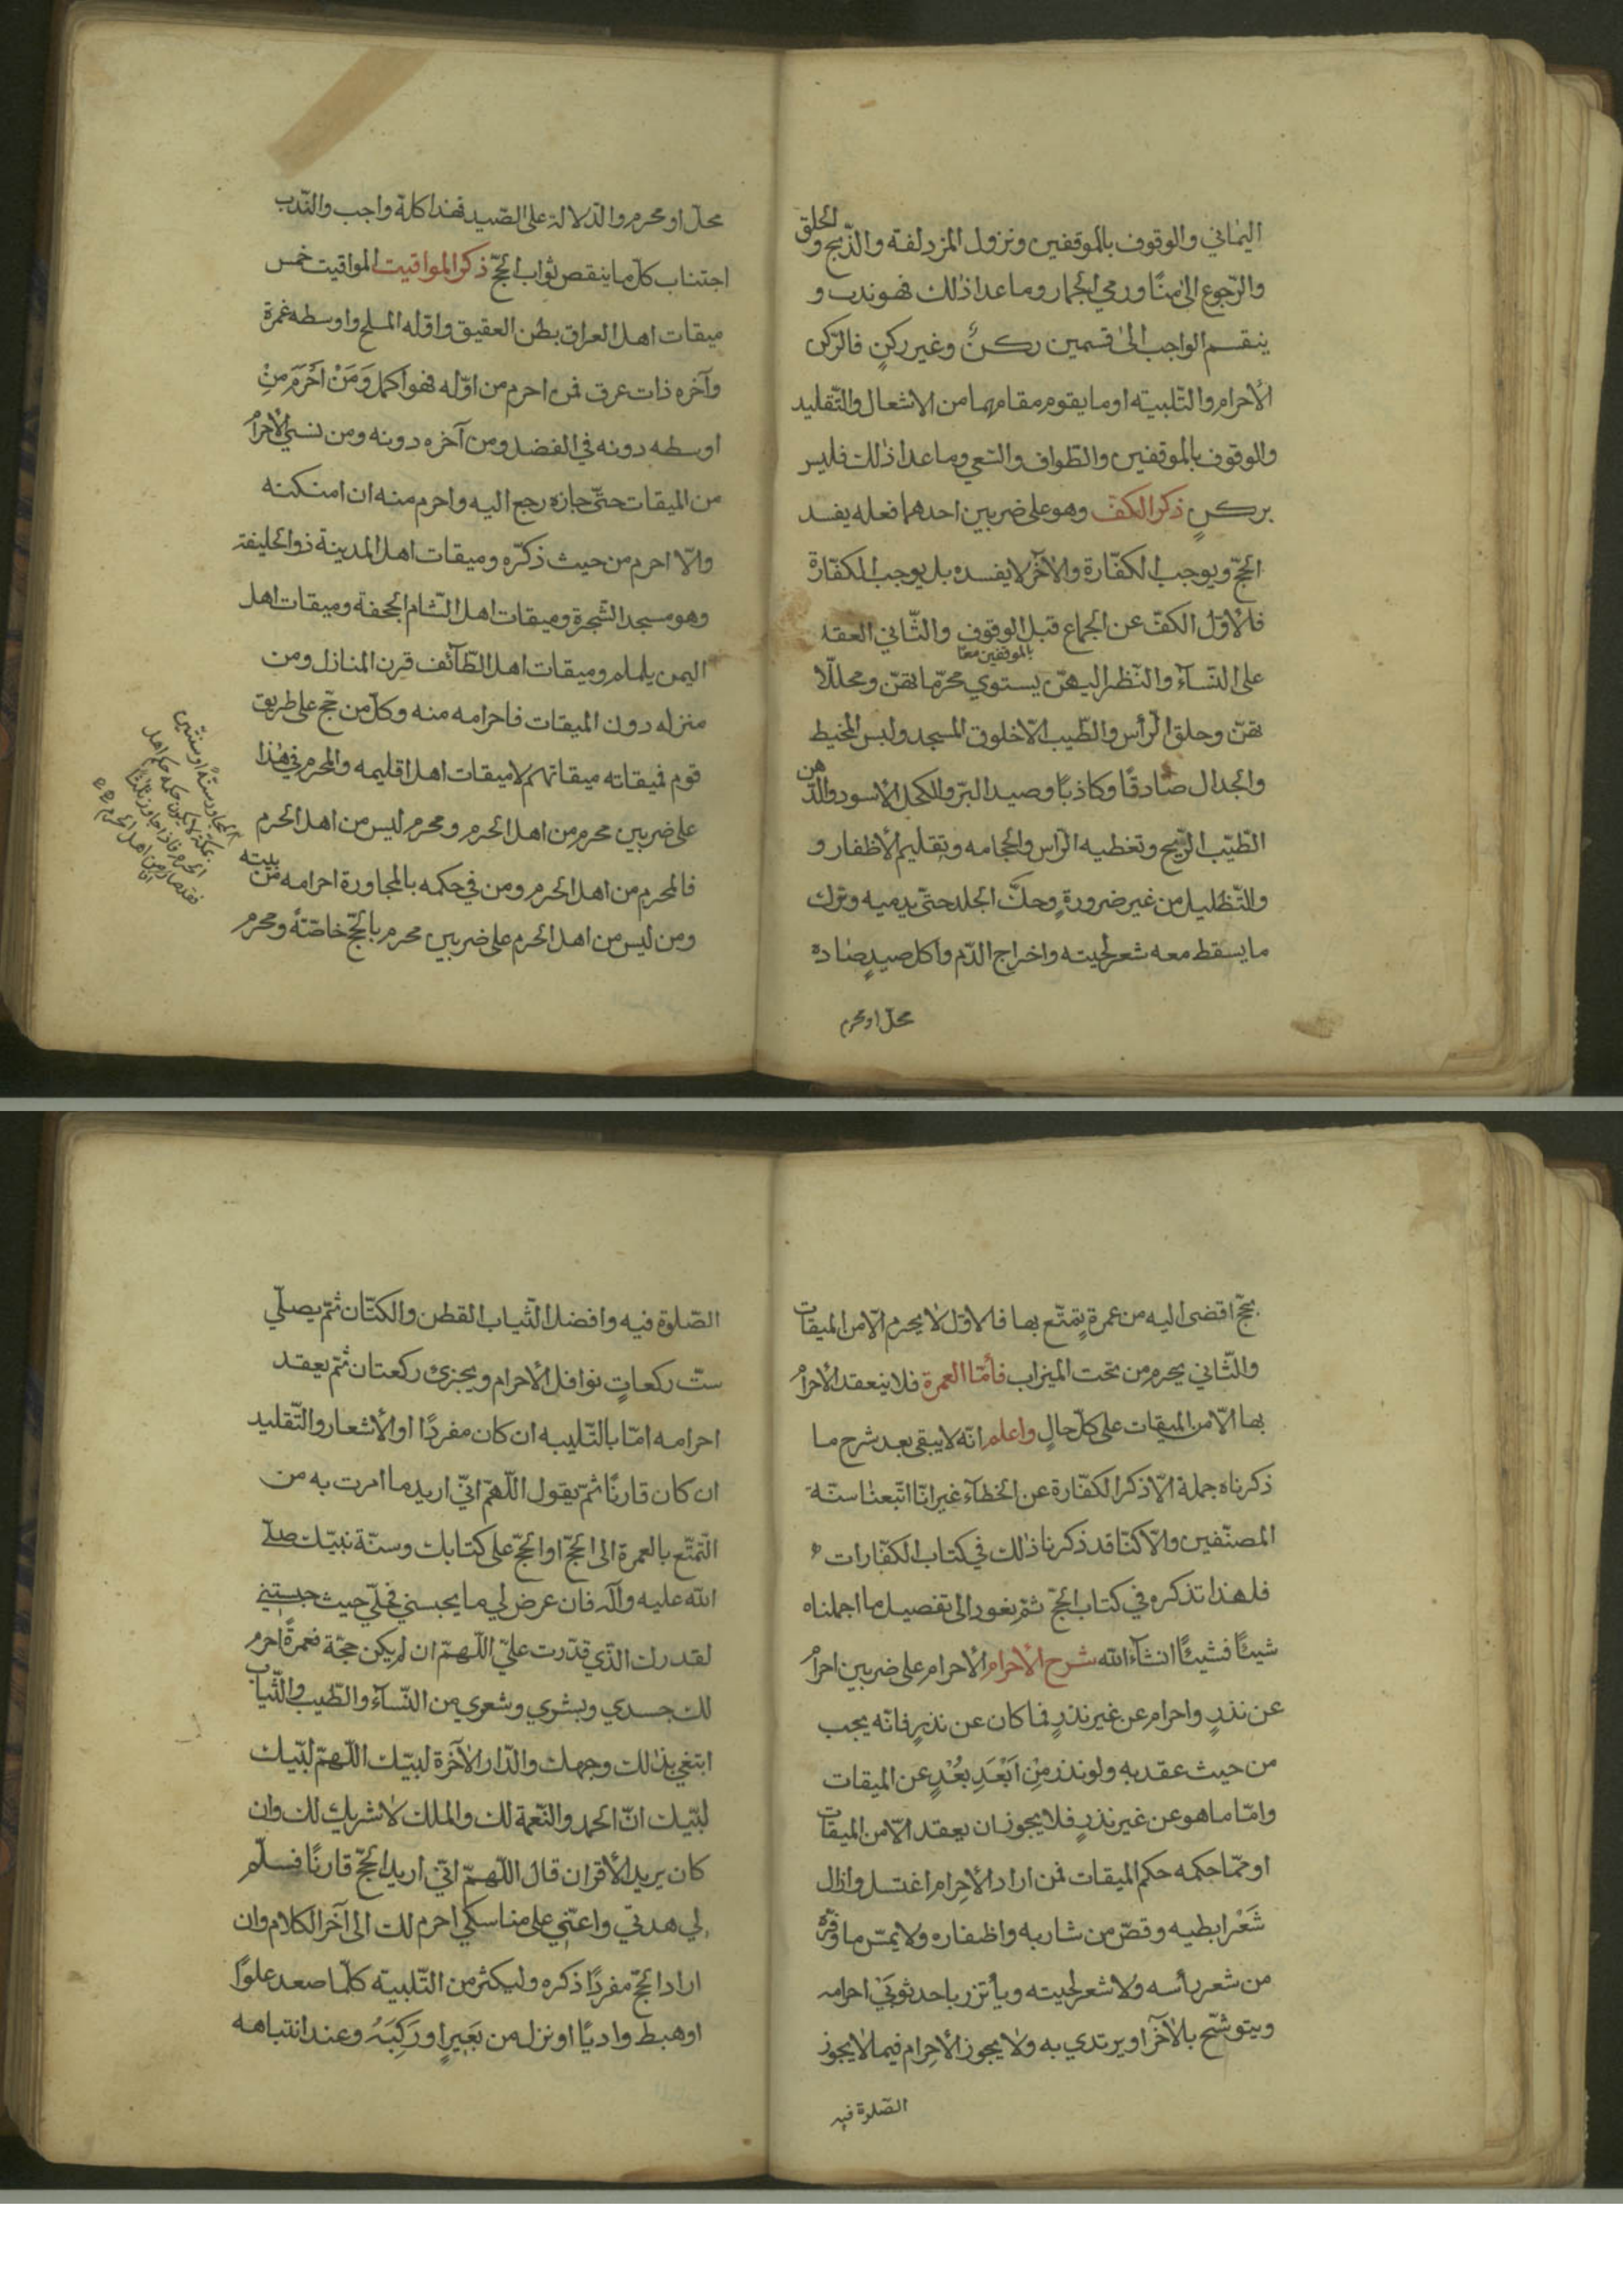 اليماني والوقوف بالموقفين ونزول المزدلفة والذّبح والحلق
والرّجوع الىٰ منًا ورمي الجمار وما عدا ذٰلك فهو ندب و
ينقسم الواجب الىٰ قسمين ركنٌ وغير ركنٍ فالرّكن
الأحرام والتّلبية او ما يقوم مقامهما من الاشعال والتّقليد
والوقوف بالموقفين والطّواف والسّعي وما عدا ذٰلك فليس
بركنٍ ذكر الكفّ وهو على ضربين احدهما فعله يفسد
الحجّ ويوجب الكفّارة والاٰخر لا يفسده بل يوجب الكفّارة
فالأوّل الكفّ عن الجماع قبل الوقوف والثّاني العقد
بالموقفين معًا
على النّسآء والنّظر اليهنّ يستوي محرّما بهنّ ومحللّا
بهنّ وحلق الرّأس والطّيب الّا خلوق المسجد ولبس المخيط
والجدال صادقًا وكاذبًا وصيد البرّ والكحل الاسود والدّهن
الطّيّب الرّيح وتغطيه الرّاس والحجامه وتقليم الأظفار و
والتّظليل من غير ضرورةٍ وحكّ الجلد حتّى يدميه وترك
ما يسقط معه شعر لحيته واخراج الدّم واكل صيدٍ صاده
محلّ او محرم
محلّ او محرم والدّلالة على الصّيد فهذا كلّه واجب والنّدب
اجتناب كلّ ما ينقص ثواب الحجّ ذكر المواقيت المواقيت خمس
ميقات اهل العراق بطن العقيق واوّله المسلح واوسطه غمرة
وآخره ذات عرق فمن احرم من اوّله فهو اكمل وَمَنْ اَحْرَمَ مِنْ
اوسطه دونه في الفضل ومن آخره دونه ومن نسي الأحرامَ
من الميقات حتّى جازه رجع اليه واحرم منه ان امكنه
والّا احرم من حيث ذكرّه وميقات اهل المدينة ذو الحليفة
وهو مسجد الشّجرة وميقات اهل الشّام الجحفة وميقات اهل
اليمن يلملم وميقات اهل الطّآئف قرن المنازل ومن
منزله دون الميقات فاحرامه منه وكلّ من حجّ على طريق
قوم فميقاته ميقاتهم لا ميقات اهل اقليمه والمحرم في هٰذا
على ضربين محرم من اهل الحرم ومحرم ليس من اهل الحرم
فالمحرم من اهل الحرم ومن في حكمه بالمجاورة احرامه من بيته
ومن ليس من اهل الحرم على ضربين محرم بالحجّ خاصّةً ومحرم
المجاور سنةً او سنتين
بمكّة لا يكون حكمه حكم اهل
الحرم فاذا جاوز ثلثًا
فقد صار من اهل الحرم
بحجّ اقضى اليه من عمرة يتمتّع بها فالاوّل لا يحرم الّا من الميقات
والثّاني يحرم من تحت الميزاب فأمّا العمرة فلا ينعقد الأحرامُ
بها الّا من الميقات على كلّ حالٍ واعلم انّه لا يبقى بعد شرح ما
ذكرناه جملة الّا ذكر الكفّارة عن الخطآء غير انّا اتّبعنا سنّة
المصنّفين والّا كنّا قد ذكرنا ذٰلك في كتاب الكفّارات
فلهذا تذكره في كتاب الحجّ ثمّ نعود الى تفصيل ما اجملناه
شيئًا فشيئًا انشآء الله شرح الأحرام الأحرام على ضربين احرامٌ
عن نذرٍ واحرام عن غير نذرٍ فما كان عن نذرٍ فانّه يجب
من حيث عقد به ولو نذر مِنْ اَبْعَدِ بُعْدٍ عن الميقات
وامّا ما هو عن غير نذرٍ فلا يجوز ان يعقد الّا من الميقات
او ممّا حكمه حكم الميقات فمن اراد الأحرام اغتسل وازال
شَعْرَ ابطيه وقصّ من شاربه واظفاره ولا يمسّ ما وفّره
من شعر رأسه ولا شعر لحيته ويأتزر باحد ثوبَيْ احرامه
ويتوشّح بالاٰخر او يرتدي به ولا يجوز الأحرام فيما لا يجوز
الصّلوة فيه
الصّلوة فيه وافضل الثّياب القطن والكتّان ثمّ يصلّي
ستّ ركعاتٍ نوافل الأحرام ويجزئ ركعتان ثمّ يعقد
احرامه امّا بالتّلبيه ان كان مفردًا او الأشعار والتّقليد
ان كان قارنًا ثمّ يقول اللّهمّ انّي اريد ما امرت به من
التّمتّع بالعمرة الى الحجّ او الحجّ على كتابك وسنّة نبيّك صلّى
الله عليه وآله فان عرض لي ما يحبسني فحلّي حيث حبستني
لقدرك الّذي قدّرت عليّ اللّهمّ ان لم يكن حجّة فعمرةً احرم
لك جسدي وبشري وشعري من النّسآء والطّيب والثّياب
ابتغي بذٰلك وجهك والدّار الاٰخرة لبيّك اللّهمّ لبّيك
لبّيك انّ الحمد والنّعمة لك والملك لا شريك لك وان
كان يريد الأقران قال اللّهمّ انّي اريد الحجّ قارنًا فسلّم
لي هديّ واعنّي على مناسكي احرم لك الى آخر الكلام وان
اراد الحجّ مفردًا ذكره وليكثر من التّلبية كلّما صعد علوًا
او هبط واديًا او نزل من بَعِيرٍ او رَكِبَهُ وعند انتباهه